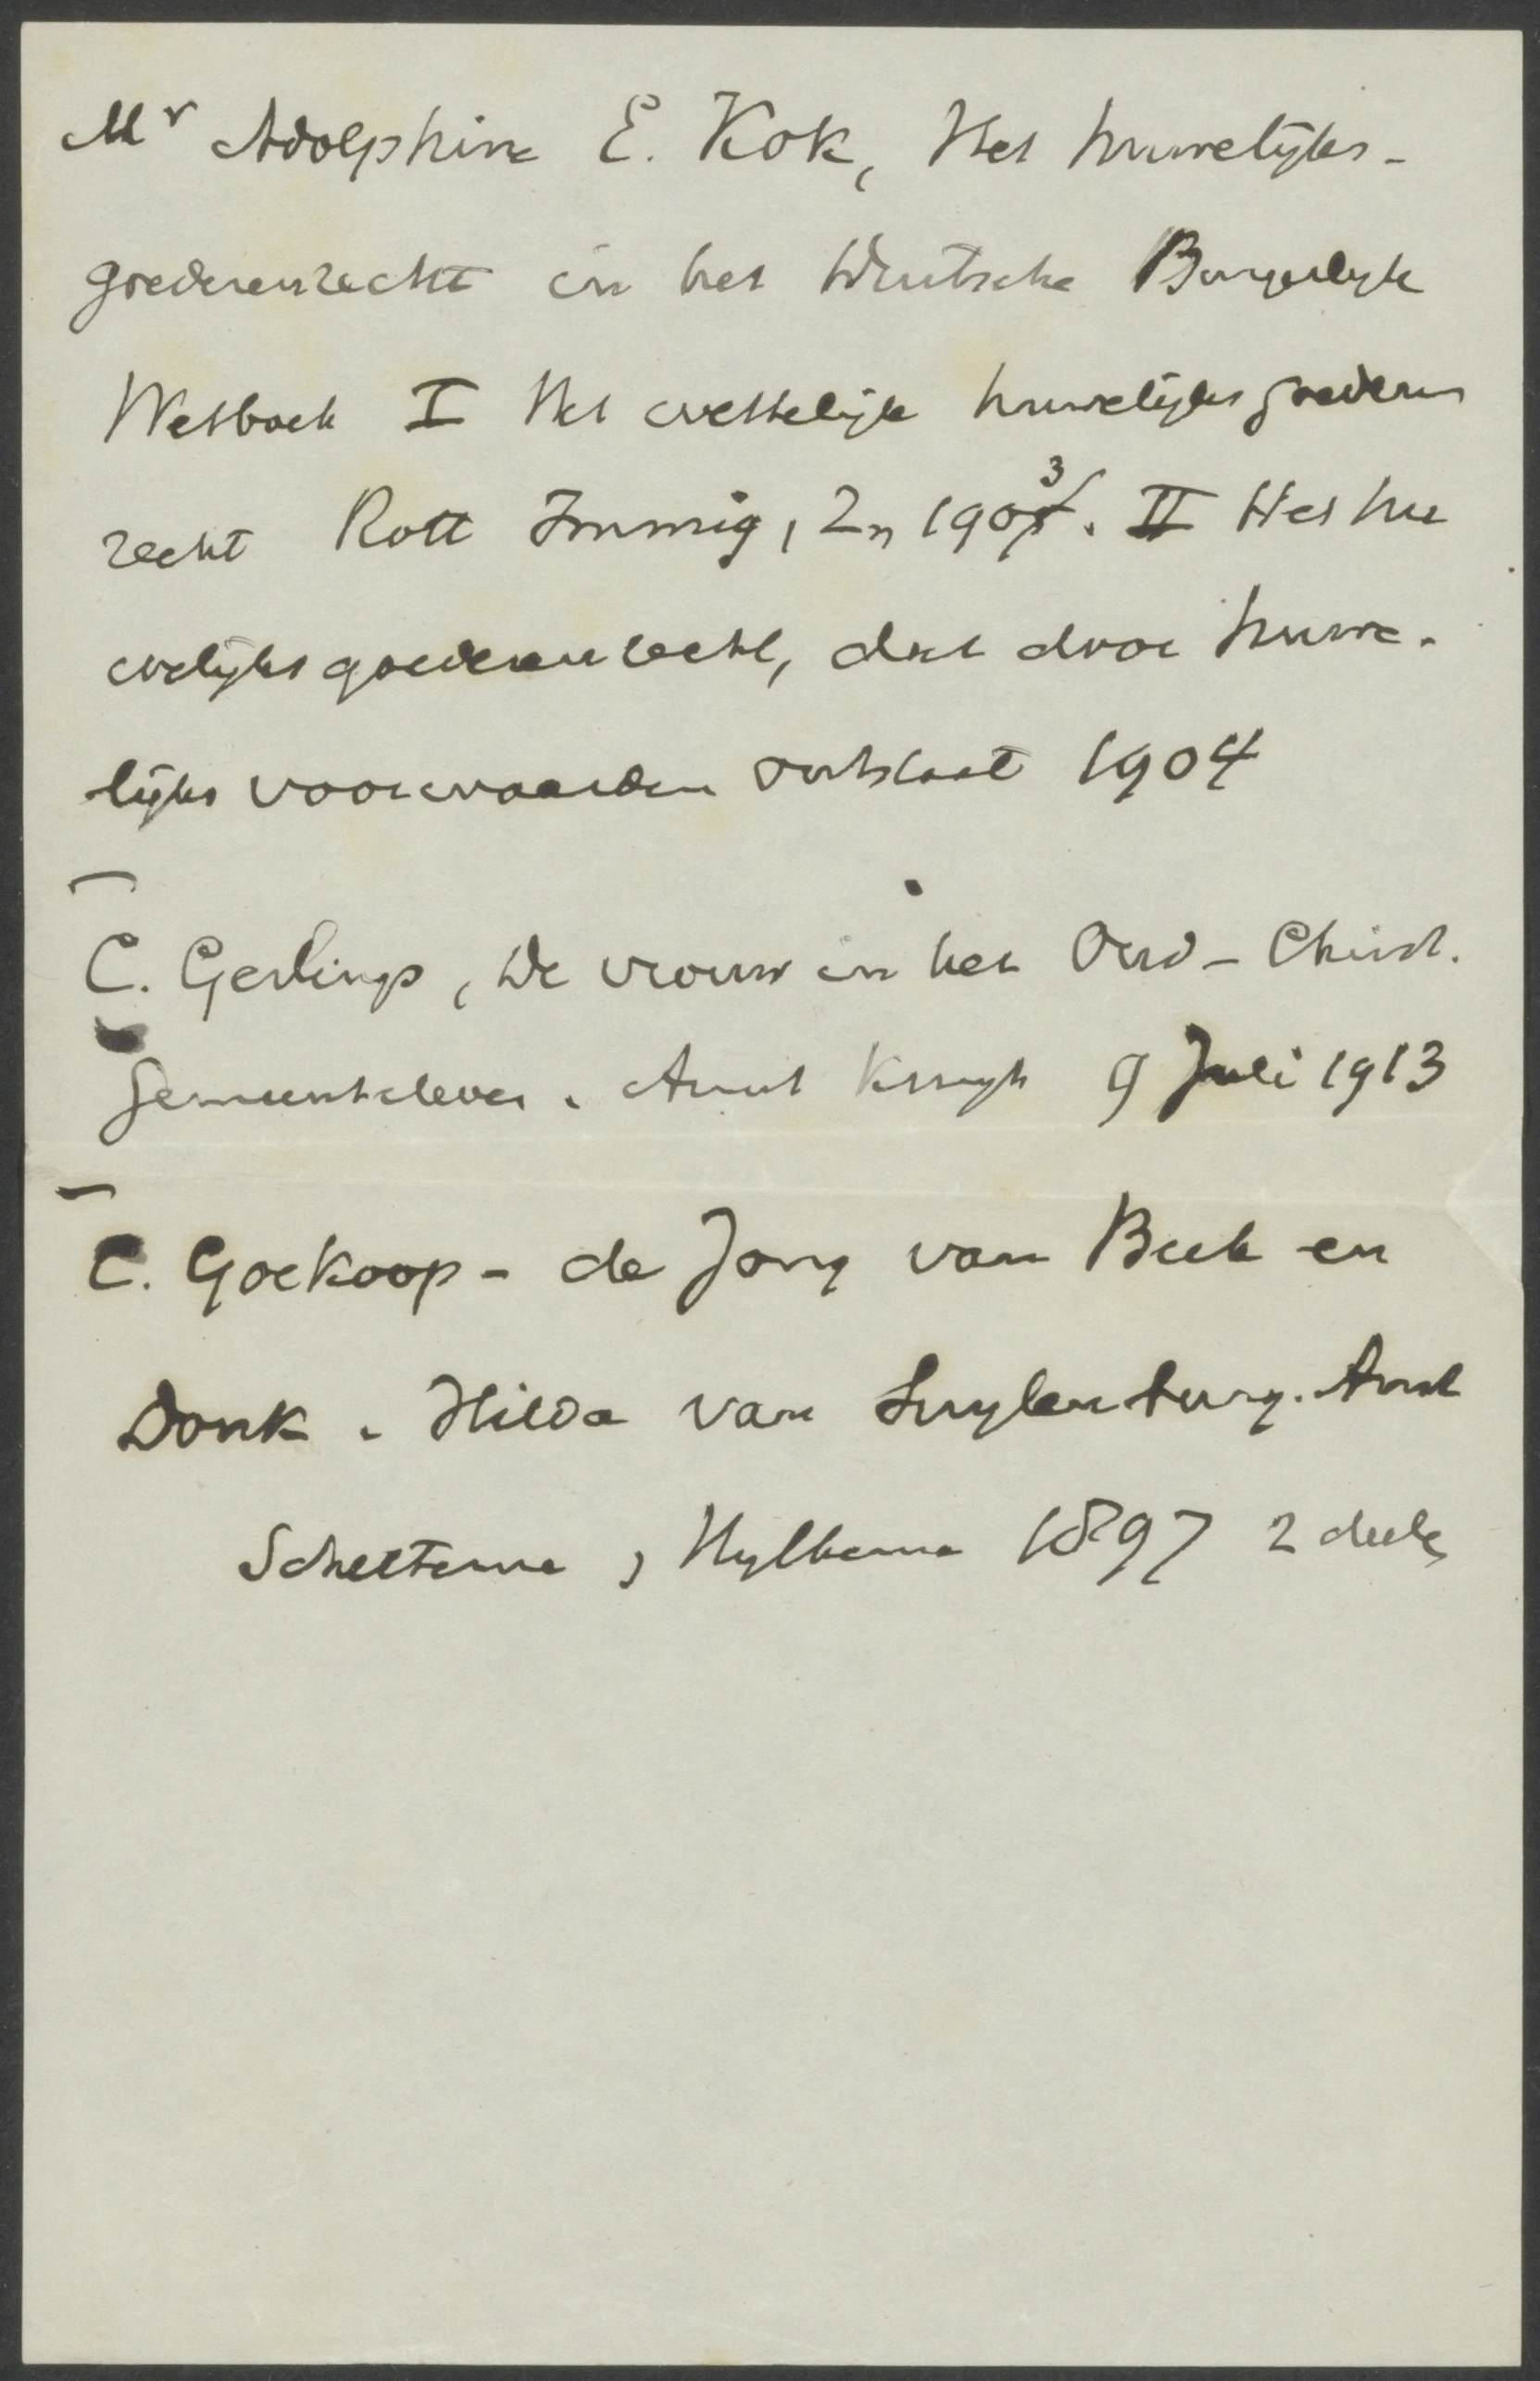 Mr Adolphine E. Kok, Het huwelijks-
goederenrecht in het Duitsche Burgerlijk
Wetboek I Het wettelijk huwelijksgoederen
recht Rott Immig, Zn 1903. II Het hu
welijksgoederenrecht, dat door huwe-
lijks voorwaarden ontstaat 1904
C. Gerlings, De vrouw in het Oud-Christ.
Gemeenteleven. Amst Kruyt 9 Juli 1913
C. Goekoop - de Jong van Beek en
Donk. Hilda van Suylenburg. Amst
Scheltema, Holkema 1897 2 deelen